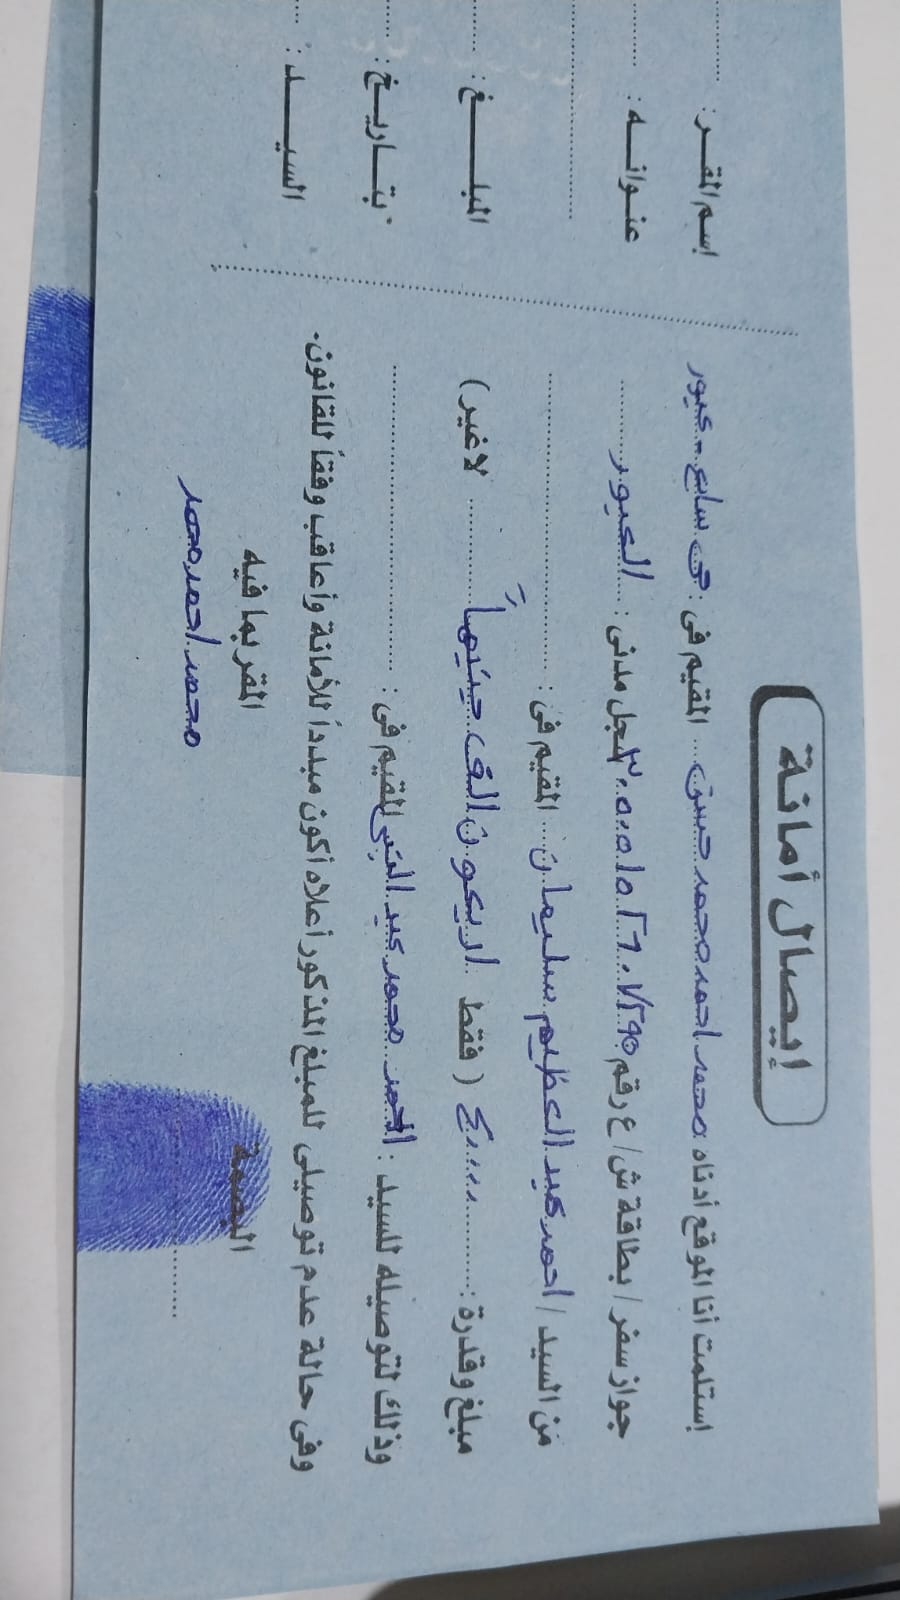 إيصال أمانة
إستلمت أنا الموقع أدناه محمد احمد محمد حسن ... المقيم فى : حى سابع - عبور
جواز سفر / بطاقة ش / ع رقم سجل مدنى : ... العبور
من السيد / احمد عبد العظيم سليمان ... المقيم فى :
مبلغ وقدرة : ( فقط اربعون الف جنيهاً ... لاغير )
وذلك لتوصيله للسيد : احمد محمد عبد النبى المقيم فى :
وفى حالة عدم توصيلى للمبلغ المذكور أعلاه أكون مبدداً للأمانة وأعاقب وفقاً للقانون .
المقر بما فيه
البصمة
محمد احمد محمد
إسم المقر :
عنوانه :
المبلغ :
بتاريخ :
السيد :